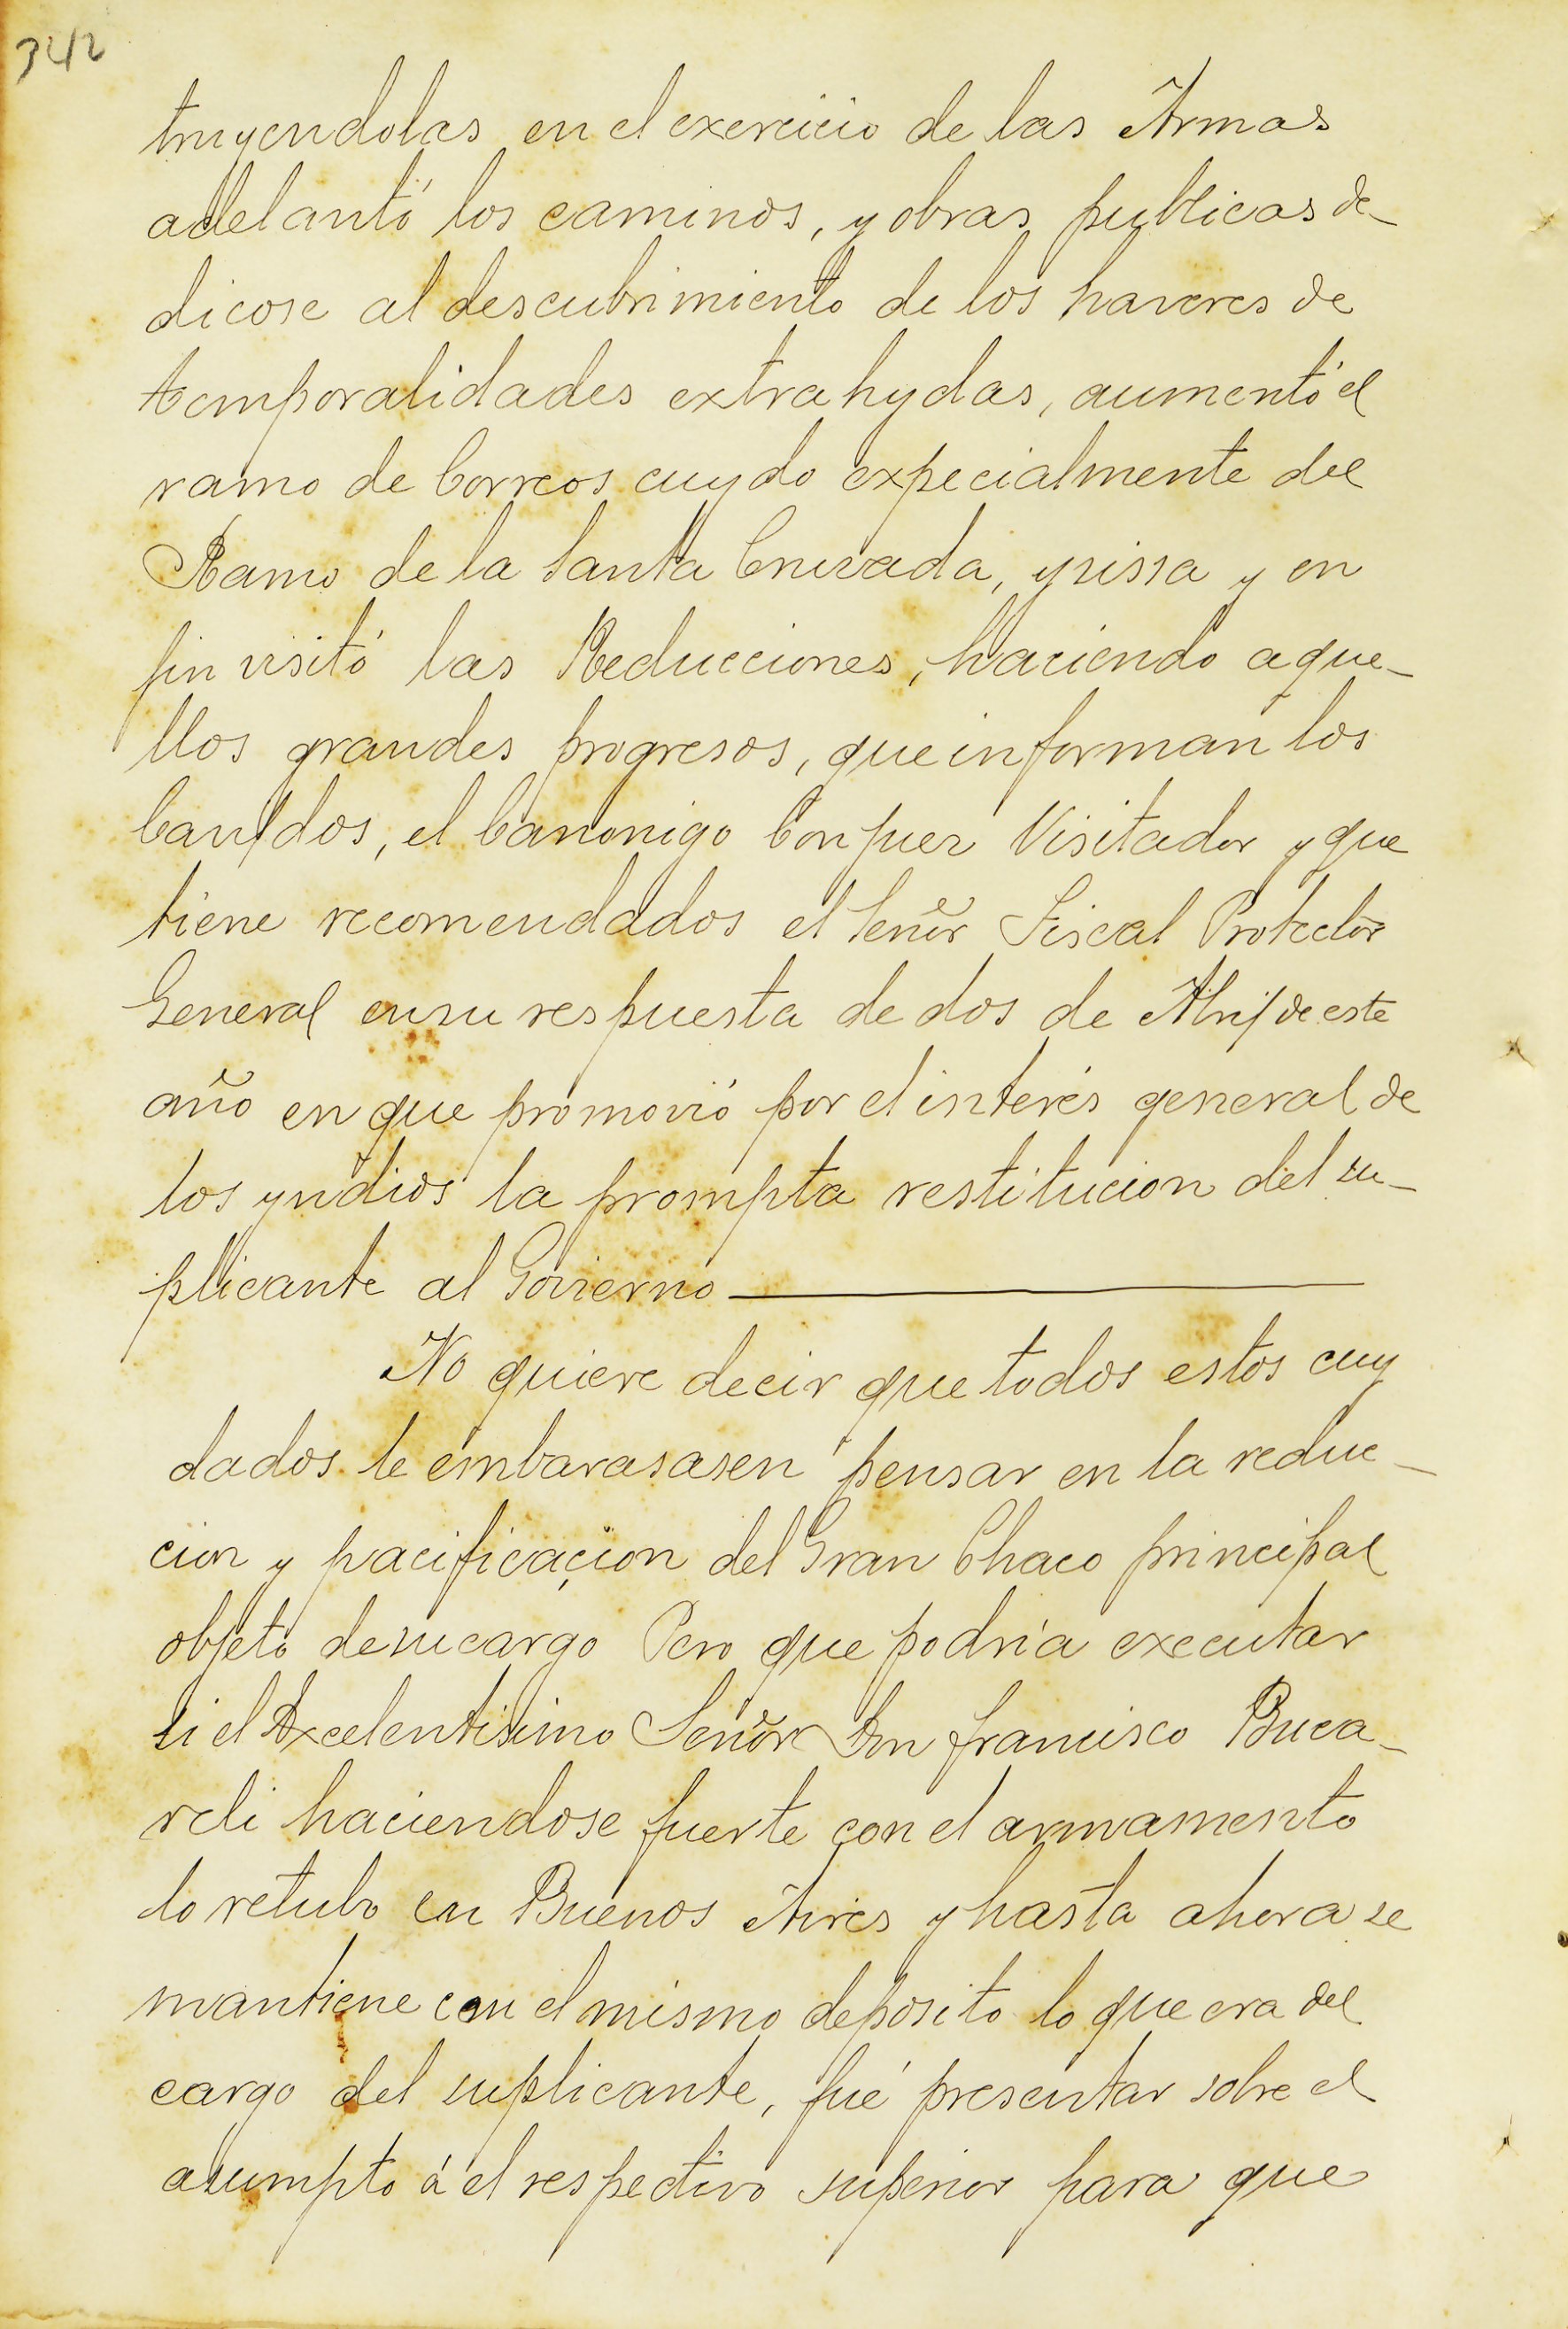 342
truyendolas en el exercicio de las Armas
adelantó los caminos, y obras publicas de-
dicose al descubrimiento de los haveres de
temporalidades extrahydas, aumentó el
ramo de Correos cuydo expecialmente del
Ramo de la Santa Cruzada, y sissa y en
fin visitó las Reducciones, haciendo aque-
llos grandes progresos, que informan los
Cavildos, el Canonigo Conjuez Visitador y que
tiene recomendados el Señor Fiscal Protector
General en su respuesta de dos de Abril de este
año en que promovió por el interés general de
los yndios la prompta restitucion del su-
plicante al Govierno
No quiere decir que todos estos cuy
dados le embarasasen pensar en la reduc-
cion y pacificaçion del Gran Chaco principal
objeto de su cargo Pero que podria executar
si el Excelentisimo Señor Don francisco Buca-
reli haciendose fuerte con el armamento
lo retubo en Buenos Aires y hasta ahora se
mantiene con el mismo deposito lo que era del
cargo del suplicante, fué presentar sobre el
asumpto á el respectivo superior para que